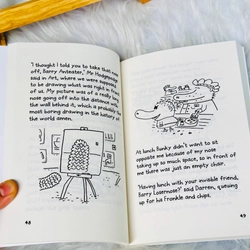 "I thought I told you to take that nose
off, Barry Anteater," Mr Hodgepodge
said in Art, where we were supposed
to be drawing what was right in front
of us. My picture was of a really long
nose going off into the distance with
the wall behind it, which is probably the
most boring drawing in the history of
the world amen.
48
At lunch Bunky didn't want to sit
opposite me because of my nose
taking up so much space, so in front of
me there was just an empty chair.
"Having lunch with your invisible friend,
Barry Losernose?" said Darren, queuing
up for his Frankie and chips.
49